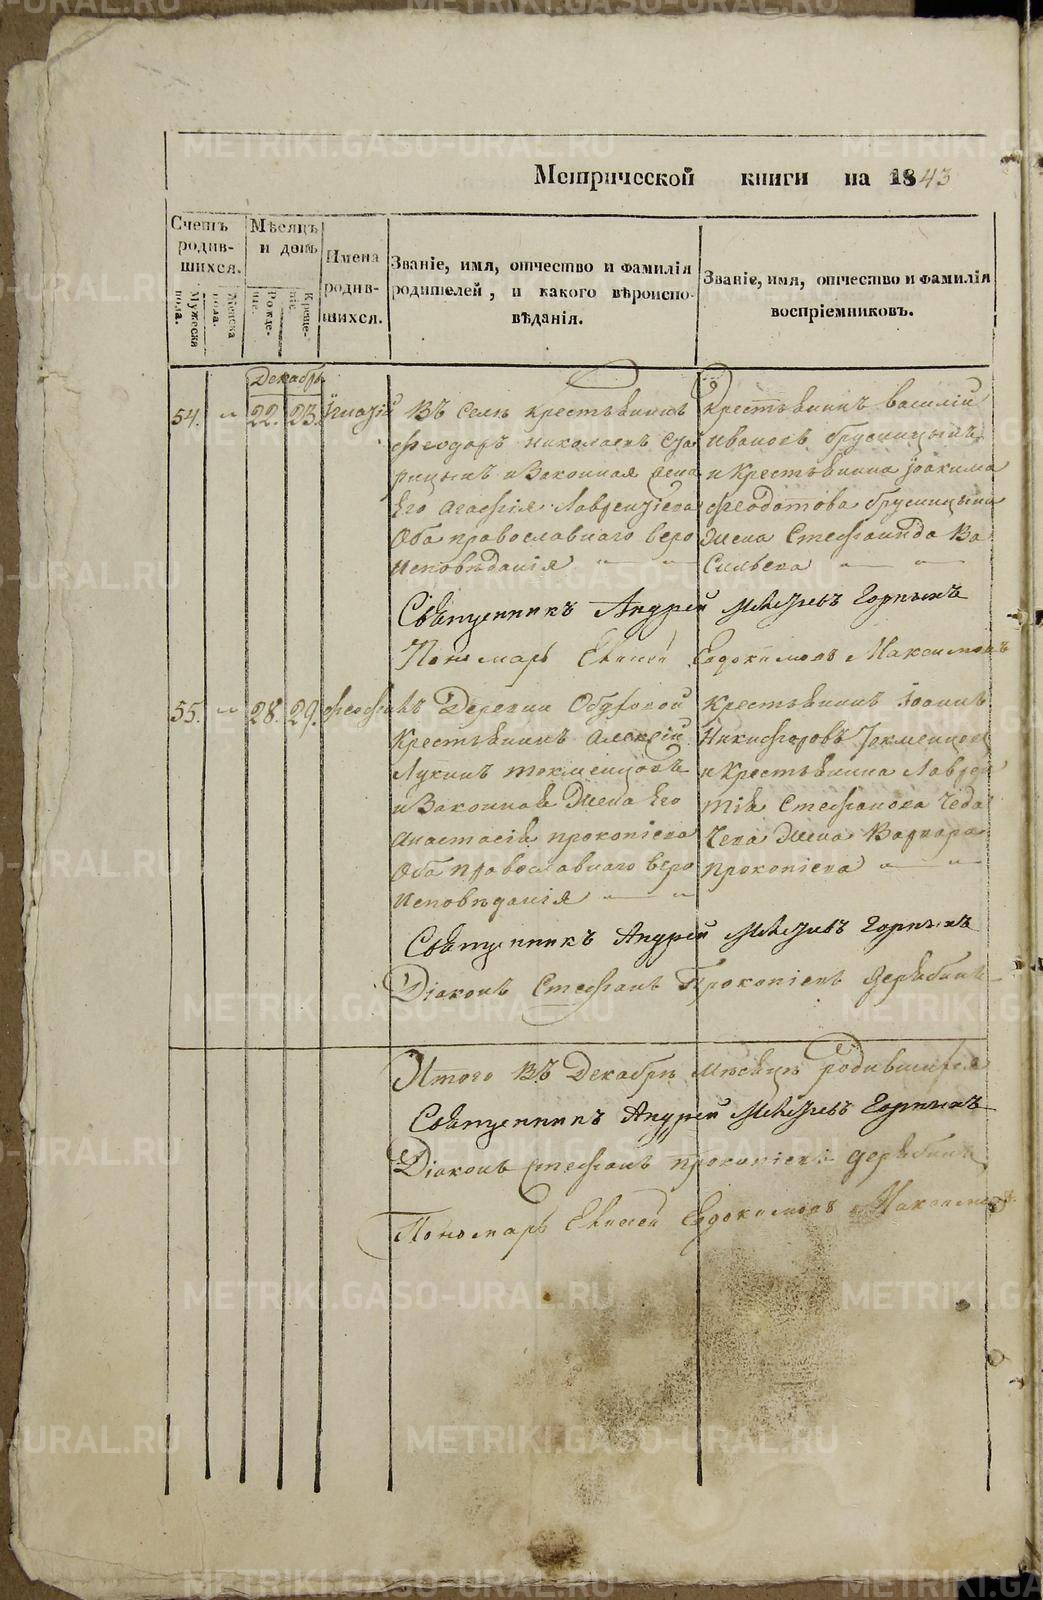 Метрической книги на 1843
Счетъ родившихся.
Мѣсяцъ и день
Имена родившихся.
Званіе, имя, отчество и фамилія родителей, и какого вѣроисповѣданія.
Званіе, имя, отчество и фамилія воспріемниковъ.
Мужеска пола.
Женска пола.
Рожденіе.
Крещеніе.
Декабрь
54. 22. 23. Игнатій
Въ селѣ крестьянинъ
Феодоръ николаевъ
и Законная жена
Его Агафія Лаврентіева
Оба православнаго веро
исповѣданія
Крестьянинъ василій
ивановъ брусницынъ
и Крестьянина Іоакима
феодотова брусницына
жена Стефанида Ва
сильева
Священникъ Андрей
Пономарь Евдокимовъ Максимовъ
55. 28. 29.
Деревни
Крестьянинъ Алексій
Лукинъ токменцовъ
и Законная жена Его
Анастасія прокопіева
Оба православнаго веро
исповѣданія
Крестьянинъ Іоаннъ
Никифоровъ Токменцовъ
и Крестьянина Лаврен
тія Стефанова
жена Варвара
прокопіева
Священникъ Андрей
Діаконъ Стефанъ Прокопіевъ Дерябинъ
Итого въ Декабрѣ мѣсяцѣ родившихся
Священникъ Андрей
Діаконъ Стефанъ прокопіевъ Дерябинъ
Пономарь Евдокимовъ Максимовъ
METRIKI.GASO-URAL.RU